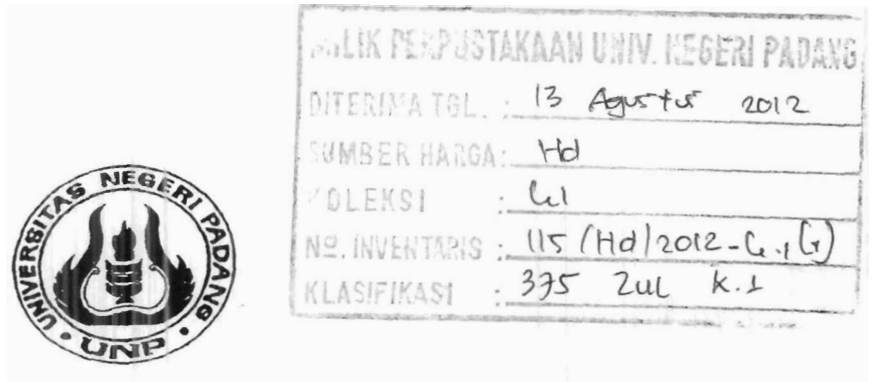 MILIK PERPUSTAKAAN UNIV. NEGERI PADANG
DITERIMA TGL. : 13 Agustus 2012
SUMBER HARGA : Hd
KOLEKSI :
Nº. INVENTARIS : 115 /Hd/2012-
KLASIFIKASI : 375 Zul k.1
UNIVERSITAS NEGERI PADANG
UNP